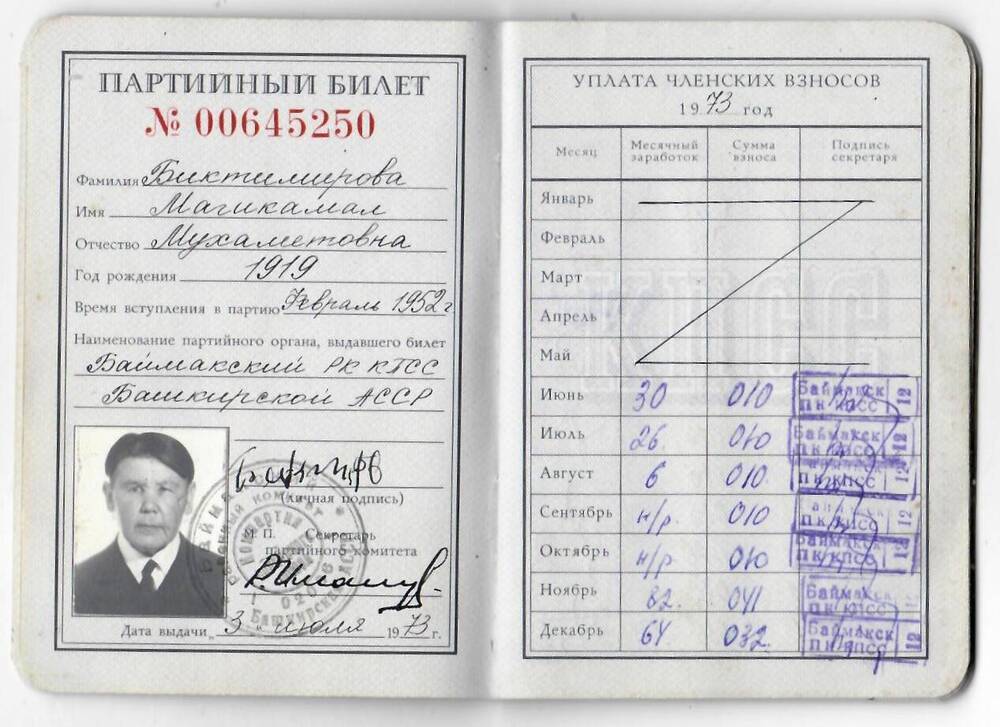 ПАРТИЙНЫЙ БИЛЕТ
№ 00645250
Фамилия Биктимирова
Имя Магикамал
Отчество Мухаметовна
Год рождения 1919
Время вступления в партию Февраль 1952 г
Наименование партийного органа, выдавшего билет
Баймакский РК КПСС
Башкирской АССР
(личная подпись)
М. П. Секретарь
партийного комитета
Дата выдачи „3" июля 1973 г.
УПЛАТА ЧЛЕНСКИХ ВЗНОСОВ
1973 год
Месяц Месячный заработок Сумма взноса Подпись секретаря
Январь
Февраль
Март
Апрель
Май
Июнь 30 010 Баймакск ПК КПСС 12
Июль 26. 010 Баймакск ПК КПСС 12
Август 6 010. ПК КПСС 12
Сентябрь н/р. 010 ПК КПСС 12
Октябрь н/р. 010 Баймакск ПК КПСС 12
Ноябрь 82. 041 Баймакск ПК КПСС
Декабрь 64 032. Баймакск ПК КПСС 12
КПСС